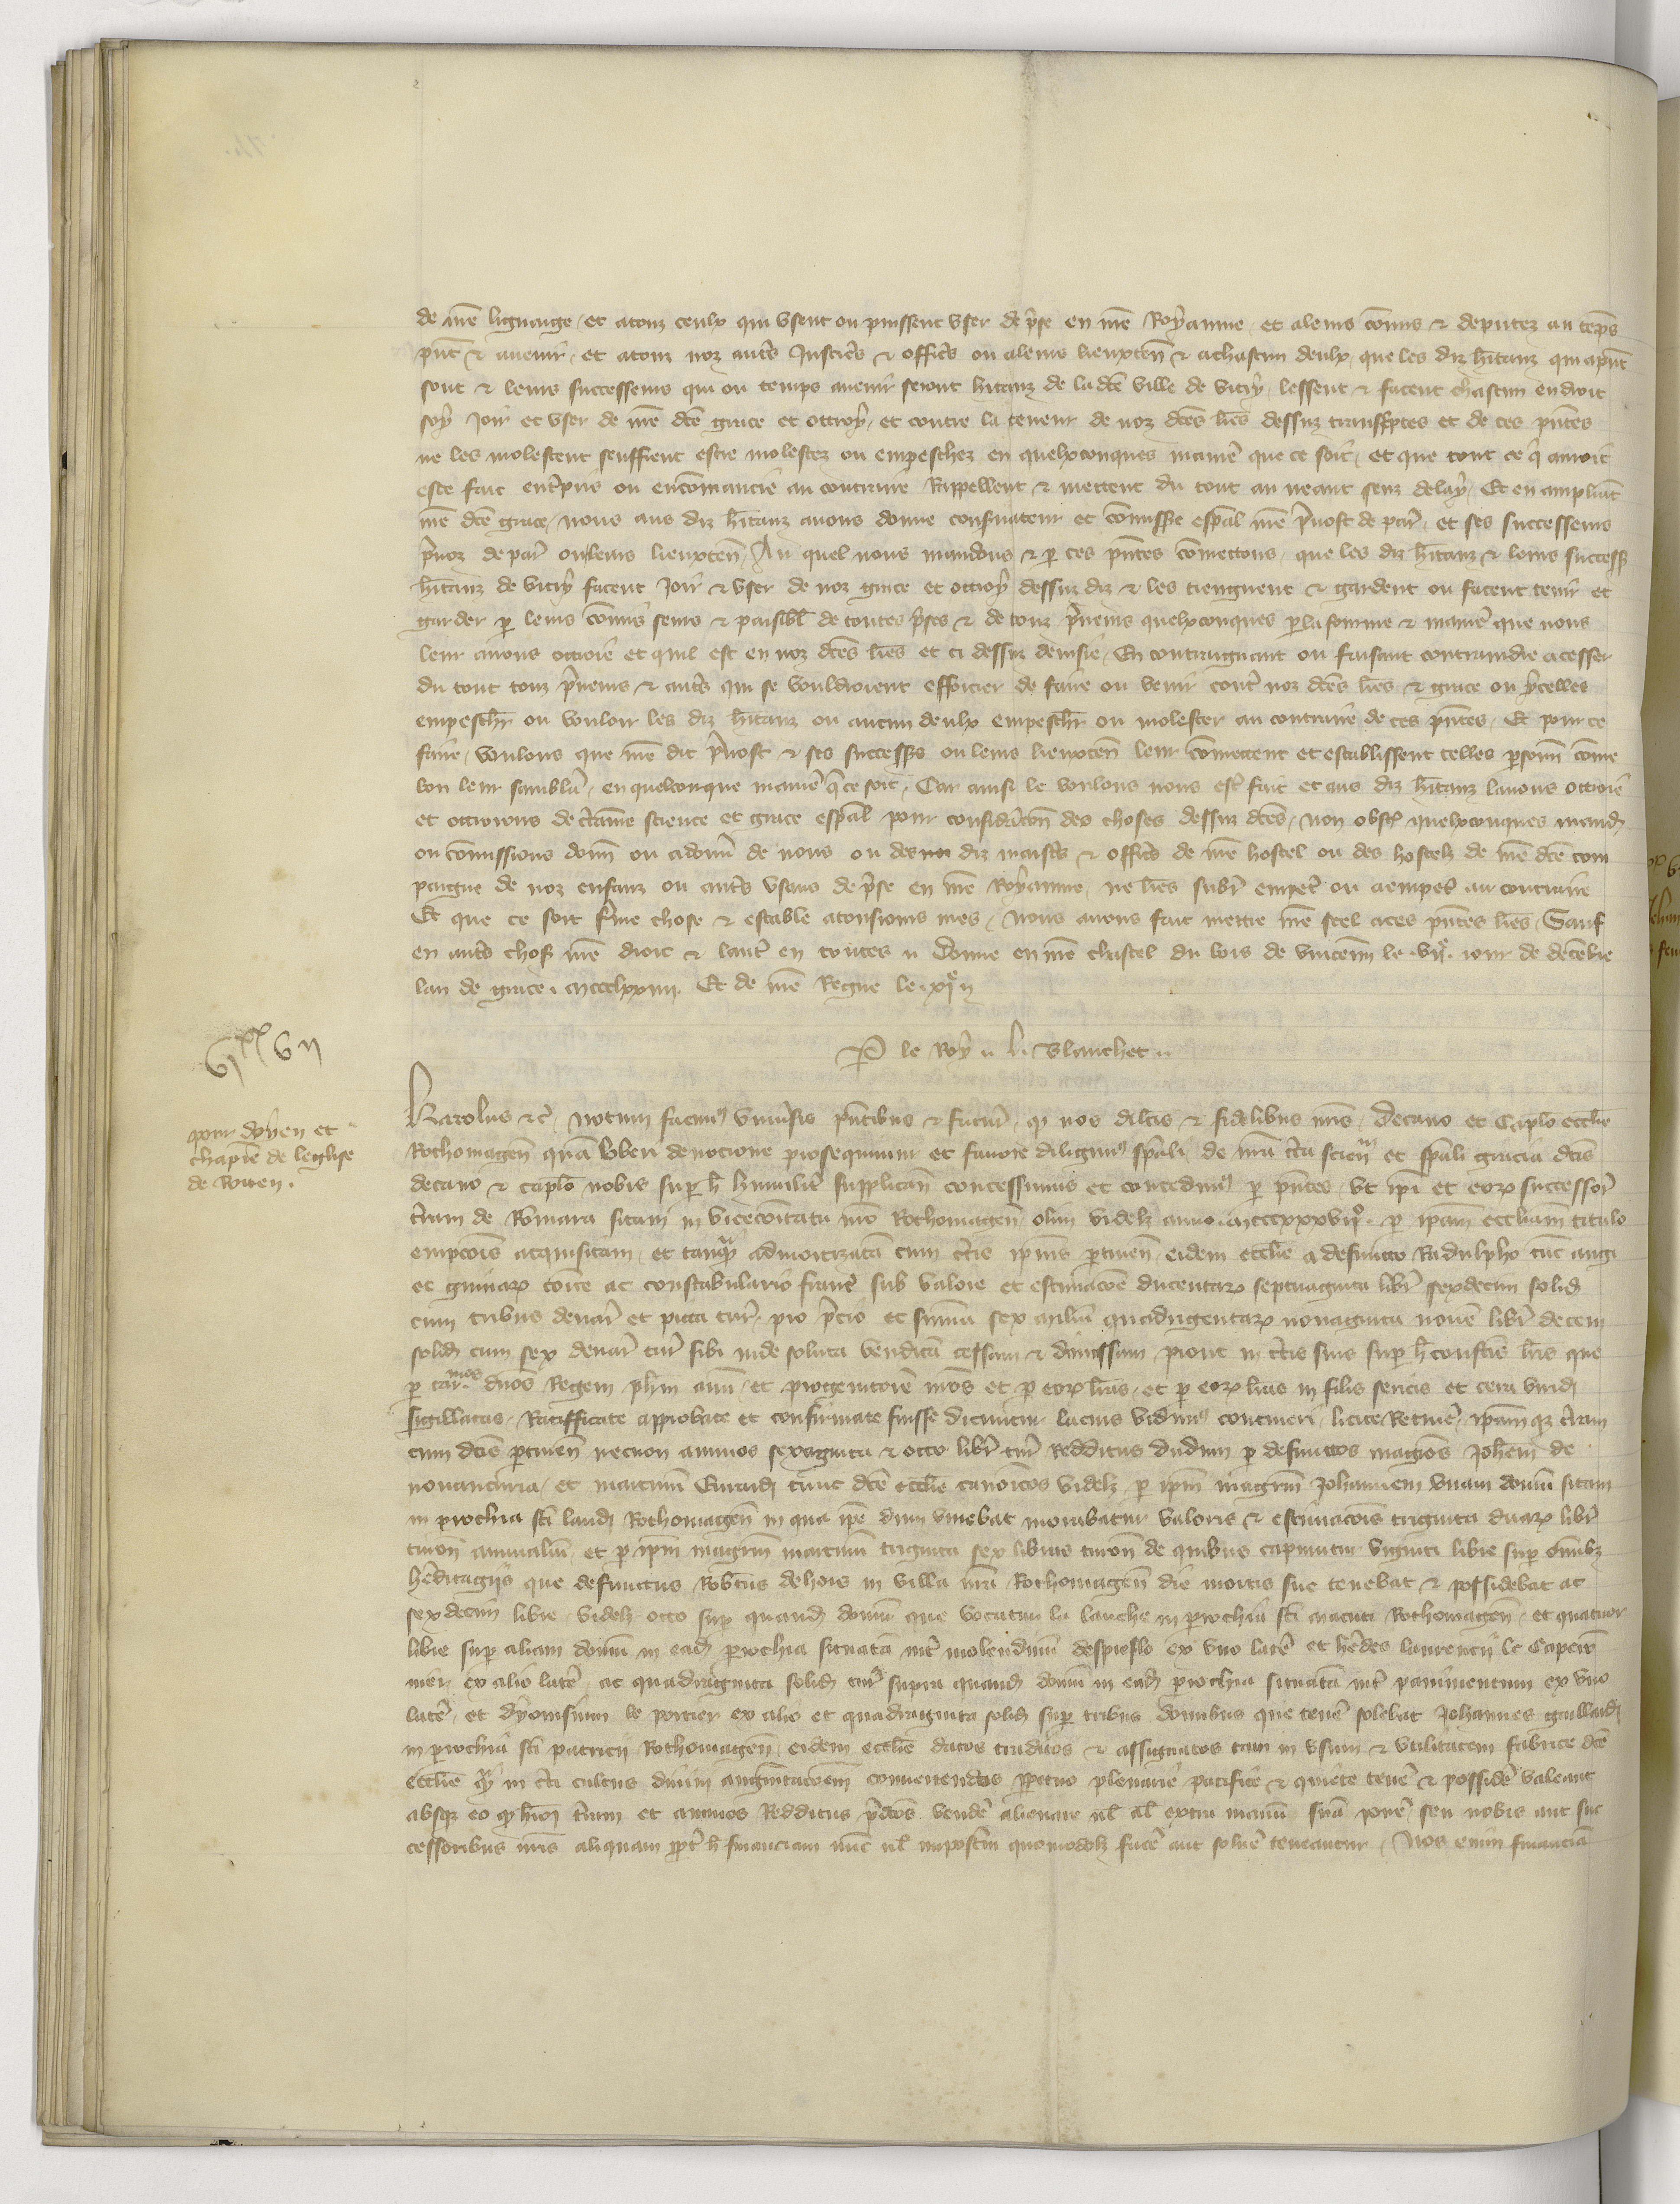 de nre lignaige et a touz ceulx qui usent ou puissent user de prise en nre Royaume et a leurs commis & deputez au temps
prnt & avenir et a touz noz autres Justiciers & officiers ou a leurs lieuxten & a chascun deulx que les diz hitanz qui a pnt
sont & leurs successeurs qui ou temps avenir seront hitanz de la dce ville de vitry lessent & facent chascun endroit
soy Joir et user de nre dce grace et ottroy et contre la teneur de noz dces lres dessuz transcriptes et de ces pntes
ne les molestent seuffrent estre molestez ou empeschez en quelxconques maniere que ce soit et que tout ce q auroit
este fait entrepris ou encommancie au contraire Rappellent & mettent du tout au neant senz delay Et en ampliant
nre dce grace nous aus diz hitanz avons donne conservateur et commissre espal nre prevost de par et ses successeurs
prevoz de par ou leurs lieuxten Au quel nous mandons & p ces pntes commettons que les diz hitanz & leurs success
hitanz de vitry facent Joir & user de noz grace et ottroy dessuz diz & les tiengnent & gardent ou facent tenir et
garder p leurs commis seurs & paisibl de toutes prises & de touz preneurs quelxconques p la fourme & maniere que nous
leur avons ottroie et quil est en noz dces lres et ci dessuz devisie En contraignant ou faisant contraindre a cesser
du tout touz preneurs & autres qui se vouldroient efforcier de faire ou venir contre noz dces lres & grace ou ycelles
empescher ou vouloir les diz hitanz ou aucun deulx empescher ou molester au contraire de ces pntes Et pour ce
faire voulons que nre dit prevost & ses success ou leurs lieuxten leur commettent et establissent telles personn comme
bon leur semblera en quelconque maniere q ce soit Car ainsi le voulons nous estre fait et aus diz hitanz lavons ottroie
et ottroions de certaine science et grace espal pour consideracion des choses dessuz dces non obst quelxconques mand
ou commissions donn ou a donner de nous ou des diz maistres & officiers de nre hostel ou des hostelz de nre dce com
paigne de noz enfanz ou autres usans de prise en nre Royaume ne lres subr empet ou a empet au contraire
Et que ce soit ferme chose & estable a tousiours mes Nous avons fait mettre nre seel a ces pntes lres Sauf
en autres choses nre droit & lautr en toutes Donne en nre chastel du bois de vincenn le viie iour de decembre
lan de grace mccclxxiiii Et de nre Regne le xie
P le Roy Blanchet
pour doyen et
chapitre de leglise
de Rouen.
Karolus &c notum facimus universis pntibus & futuris q nos dilcis & fidelibus nris Decano et Caplo ecclie
Rothomagen quam uberi devocione prosequimur et favore diligimus spali de nra certa scien et spali gracia dcis
decano & caplo nobis sup h humilit supplican concessimus et concedimus p pntes ut ipi et eorum successores
terram de Romara sitam in vicecomitatu nro Rothomagen olim videlz anno mcccxxxvii p ipam eccliam titulo
empcois acquisitam et tanq admortizatam cum certis ipius ptinen eidem ecclie a defuncto Radulpho tunc augi
et guinarum comite ac constabulario francie sub valore et estimacoe ducentarum septuaginta libr sexdecim solid
cum tribus denar et picta tur pro precio et summa sex milium quadringentarum nonaginta novem libr decem
solid cum sex denar tur sibi inde soluta venditam cessam & dimissam prout in certis suis sup h confectis lris que
p carmos dnos Regem phm avum et progenitorem nros et p eorum lras et p eorum lras in filis sericis et cera virid
sigillatas Ratifficate approbate et confirmate fuisse dicuntur lacius vidimus contineri licite Retinere ipamq terram
cum dcis ptinen necnon annuos sexaginta & octo libr tur Redditus dudum p defunctos magros Johem de
et martinum tunc dce ecclie canoicos videlz p ipm magrm Johannem unam domum sitam
in parrochia sti laudi Rothomagen in qua ipe dum vivebat morabatur valoris & estimacois triginta duarum libr
turon annualium et p ipm magrm martinum triginta sex libras turon de quibus capiuntur viginti libre sup omnibz
hereditagiis que defunctus Robtus dehors in villa nra Rothomagen die mortis sue tenebat & possidebat ac
sexdecim libre videlz octo sup quand domum que vocatur la lanche in parrochia sti macuti Rothomagen et quatuor
libre sup aliam domum in ead parrochia situatam int molendinum ex uno latere et heredes laurencii le
ex alio latere ac quadraginta solid tur supra quand domum in ead parrochia situatam int pavimentum ex uno
latere et dyonisium le portier ex alio et quadraginta solid sup tribus domibus que tenere solebat Johannes
in parrochia sti patricii Rothomagen eidem ecclie datos traditos & assignatos tam in usum & utilitatem fabrice dce
ecclie q in certi cultus divini augmentacoem convertendos ppetuo plenarie pacifice & quiete tenere & possidere valeant
absq eo q hmoi terram et annuos Redditus predcos vendere alienare ul al extra manum suam ponere seu nobis aut suc
cessoribus nris aliquam ppt h financiam nunc ul imposterum quomodolz facere aut solvere teneantur Nos enim financiam